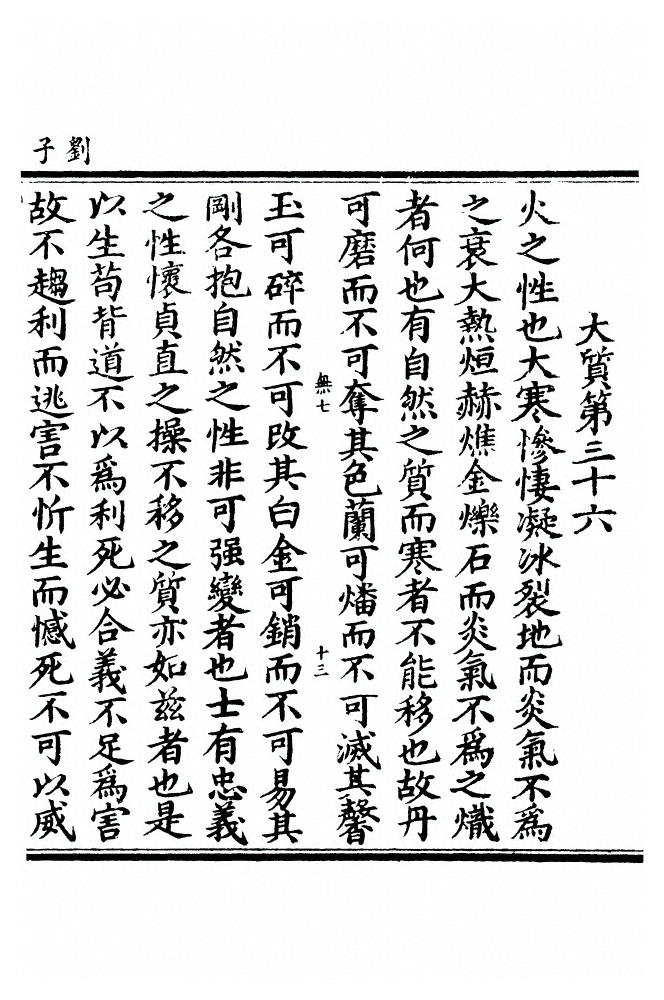 劉子
大質第三十六
火之性也大寒慘悽凝冰裂地而炎氣不爲
之衰大熱烜赫燋金爍石而炎氣不爲之熾
者何也有自然之質而寒者不能移也故丹
可磨而不可奪其色蘭可燔而不可滅其馨
無七
十三
玉可碎而不可改其白金可銷而不可易其
剛各抱自然之性非可强變者也士有忠義
之性懷貞直之操不移之質亦如兹者也是
以生苟背道不以爲利死必合義不足爲害
故不趨利而逃害不忻生而憾死不可以威